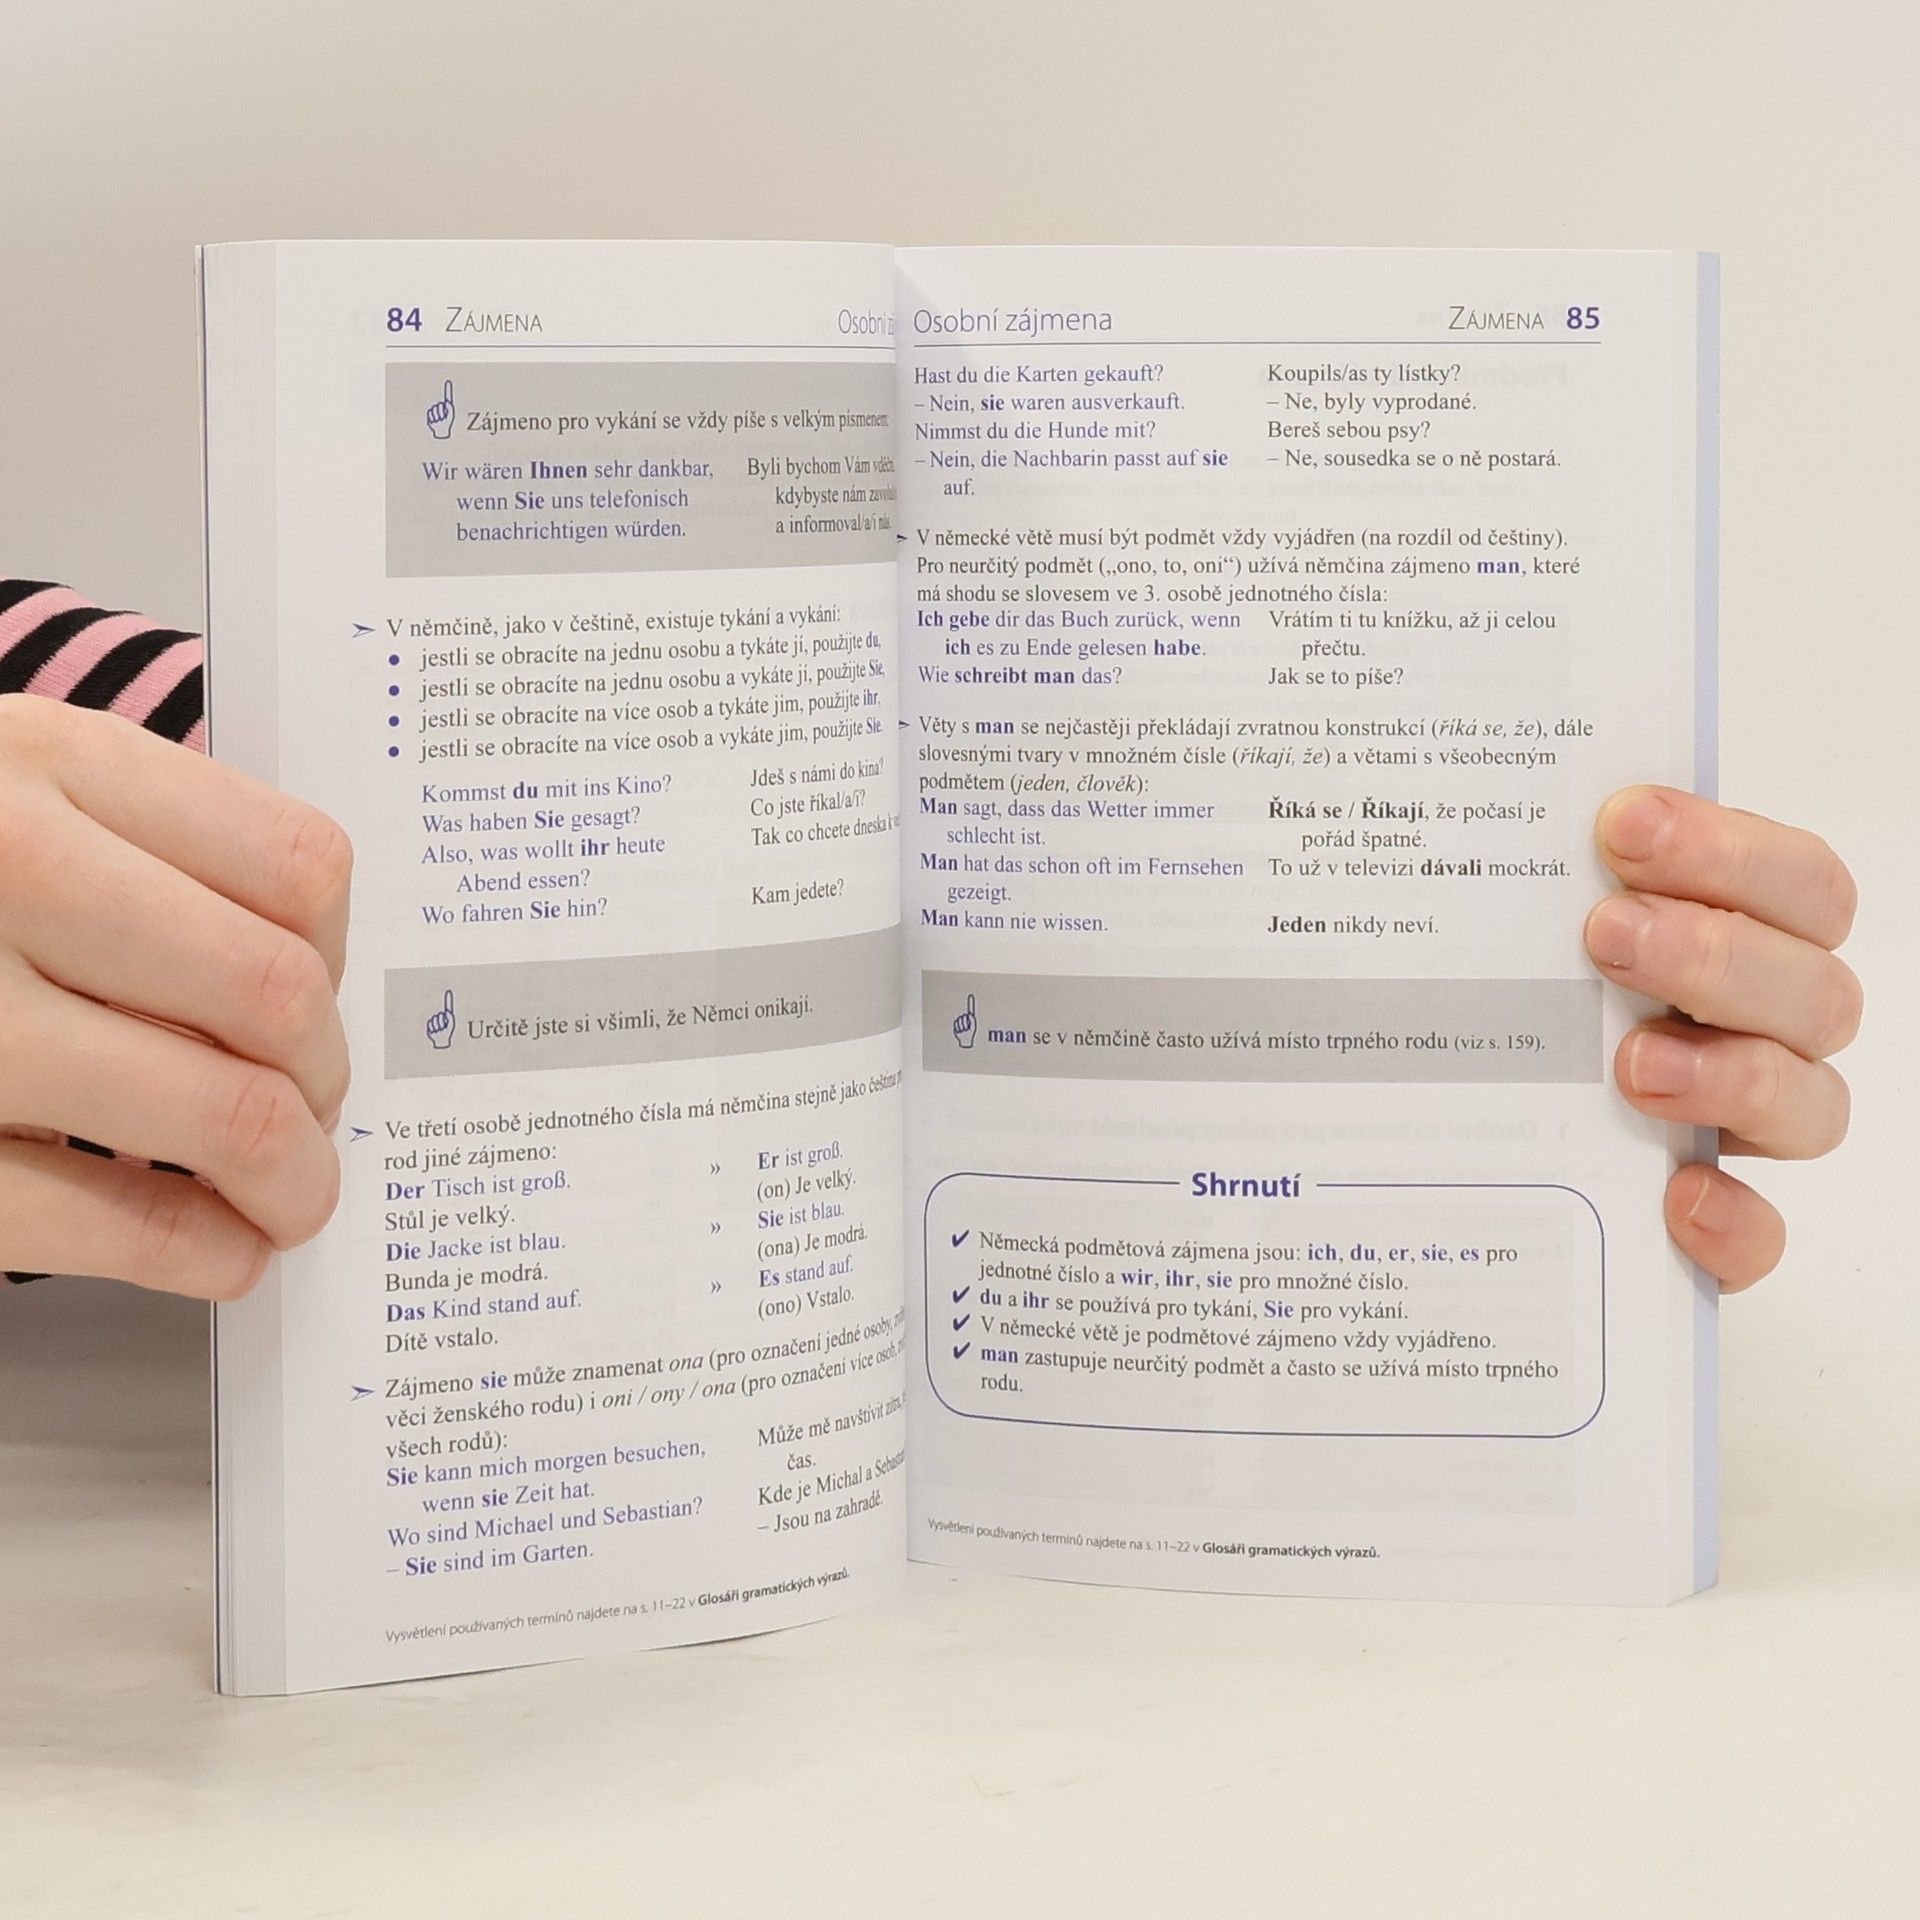 84 ZÁJMENA
Zájmeno pro vykání se vždy píše s velkým písmenem:
Wir wären Ihnen sehr dankbar, Byli bychom Vám
wenn Sie uns telefonisch kdybyste nám
benachrichtigen würden. a informoval/a/i nás.
➣ V němčině, jako v češtině, existuje tykání a vykání:
• jestli se obracíte na jednu osobu a tykáte jí, použijte du,
• jestli se obracíte na jednu osobu a vykáte jí, použijte Sie,
• jestli se obracíte na více osob a tykáte jim, použijte ihr,
• jestli se obracíte na více osob a vykáte jim, použijte Sie.
Kommst du mit ins Kino? Jdeš s námi do kina?
Was haben Sie gesagt? Co jste říkal/a/i?
Also, was wollt ihr heute Tak co chcete dneska k
Abend essen?
Wo fahren Sie hin? Kam jedete?
Určitě jste si všimli, že Němci onikají.
➣ Ve třetí osobě jednotného čísla má němčina stejně jako čeština
rod jiné zájmeno:
Der Tisch ist groß. » Er ist groß.
Stůl je velký. (on) Je velký.
Die Jacke ist blau. » Sie ist blau.
Bunda je modrá. (ona) Je modrá.
Das Kind stand auf. » Es stand auf.
Dítě vstalo. (ono) Vstalo.
➣ Zájmeno sie může znamenat ona (pro označení jedné osoby,
věci ženského rodu) i oni / ony / ona (pro označení více osob,
všech rodů):
Sie kann mich morgen besuchen, Může mě navštívit zítra,
wenn sie Zeit hat. čas.
Wo sind Michael und Sebastian? Kde je Michal a
– Sie sind im Garten. – Jsou na zahradě.
Vysvětlení používaných termínů najdete na s. 11–22 v Glosáři gramatických výrazů.
Osobní zájmena ZÁJMENA 85
Hast du die Karten gekauft? Koupils/as ty lístky?
– Nein, sie waren ausverkauft. – Ne, byly vyprodané.
Nimmst du die Hunde mit? Bereš sebou psy?
– Nein, die Nachbarin passt auf sie – Ne, sousedka se o ně postará.
auf.
➣ V německé větě musí být podmět vždy vyjádřen (na rozdíl od češtiny).
Pro neurčitý podmět („ono, to, oni“) užívá němčina zájmeno man, které
má shodu se slovesem ve 3. osobě jednotného čísla:
Ich gebe dir das Buch zurück, wenn Vrátím ti tu knížku, až ji celou
ich es zu Ende gelesen habe. přečtu.
Wie schreibt man das? Jak se to píše?
➣ Věty s man se nejčastěji překládají zvratnou konstrukcí (říká se, že), dále
slovesnými tvary v množném čísle (říkají, že) a větami s všeobecným
podmětem (jeden, člověk):
Man sagt, dass das Wetter immer Říká se / Říkají, že počasí je
schlecht ist. pořád špatné.
Man hat das schon oft im Fernsehen To už v televizi dávali mockrát.
gezeigt.
Man kann nie wissen. Jeden nikdy neví.
man se v němčině často užívá místo trpného rodu (viz s. 159).
Shrnutí
✔ Německá podmětová zájmena jsou: ich, du, er, sie, es pro
jednotné číslo a wir, ihr, sie pro množné číslo.
✔ du a ihr se používá pro tykání, Sie pro vykání.
✔ V německé větě je podmětové zájmeno vždy vyjádřeno.
✔ man zastupuje neurčitý podmět a často se užívá místo trpného
rodu.
Vysvětlení používaných termínů najdete na s. 11–22 v Glosáři gramatických výrazů.